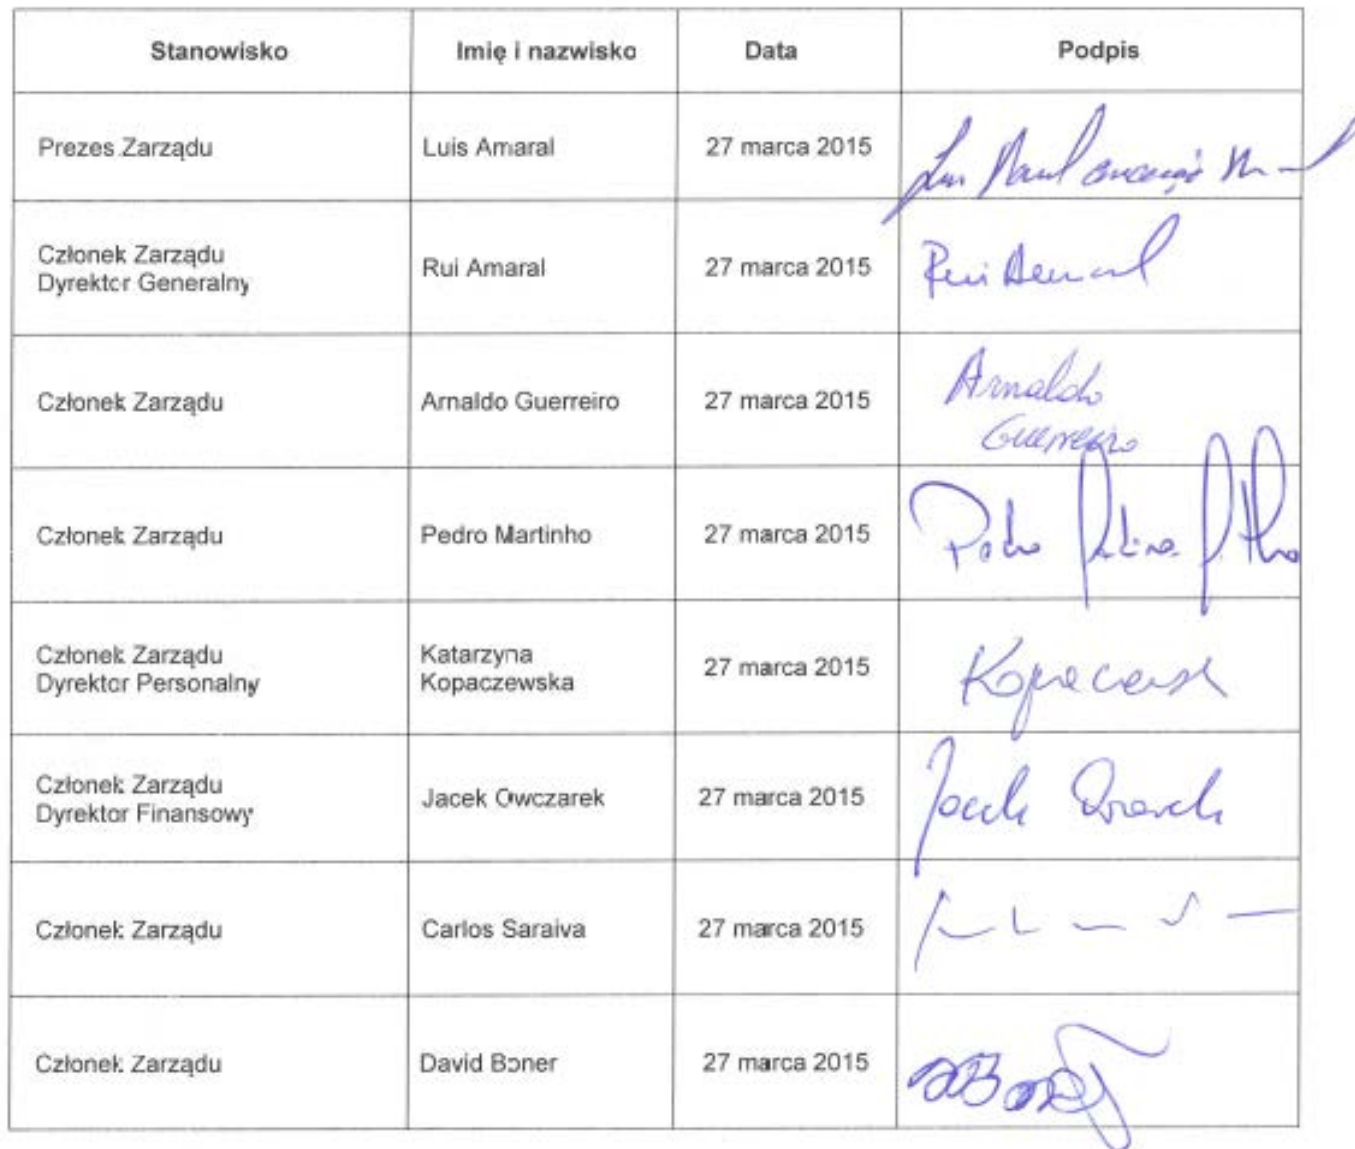 Stanowisko Imię i nazwisko Data Podpis
Prezes Zarządu Luis Amaral 27 marca 2015
Członek Zarządu
Dyrektor Generalny Rui Amaral 27 marca 2015 Rui Amaral
Członek Zarządu Arnaldo Guerreiro 27 marca 2015 Arnaldo
Guerreiro
Członek Zarządu Pedro Martinho 27 marca 2015 Pedro
Członek Zarządu
Dyrektor Personalny Katarzyna
Kopaczewska 27 marca 2015
Członek Zarządu
Dyrektor Finansowy Jacek Owczarek 27 marca 2015 Jacek
Członek Zarządu Carlos Saraiva 27 marca 2015
Członek Zarządu David Boner 27 marca 2015